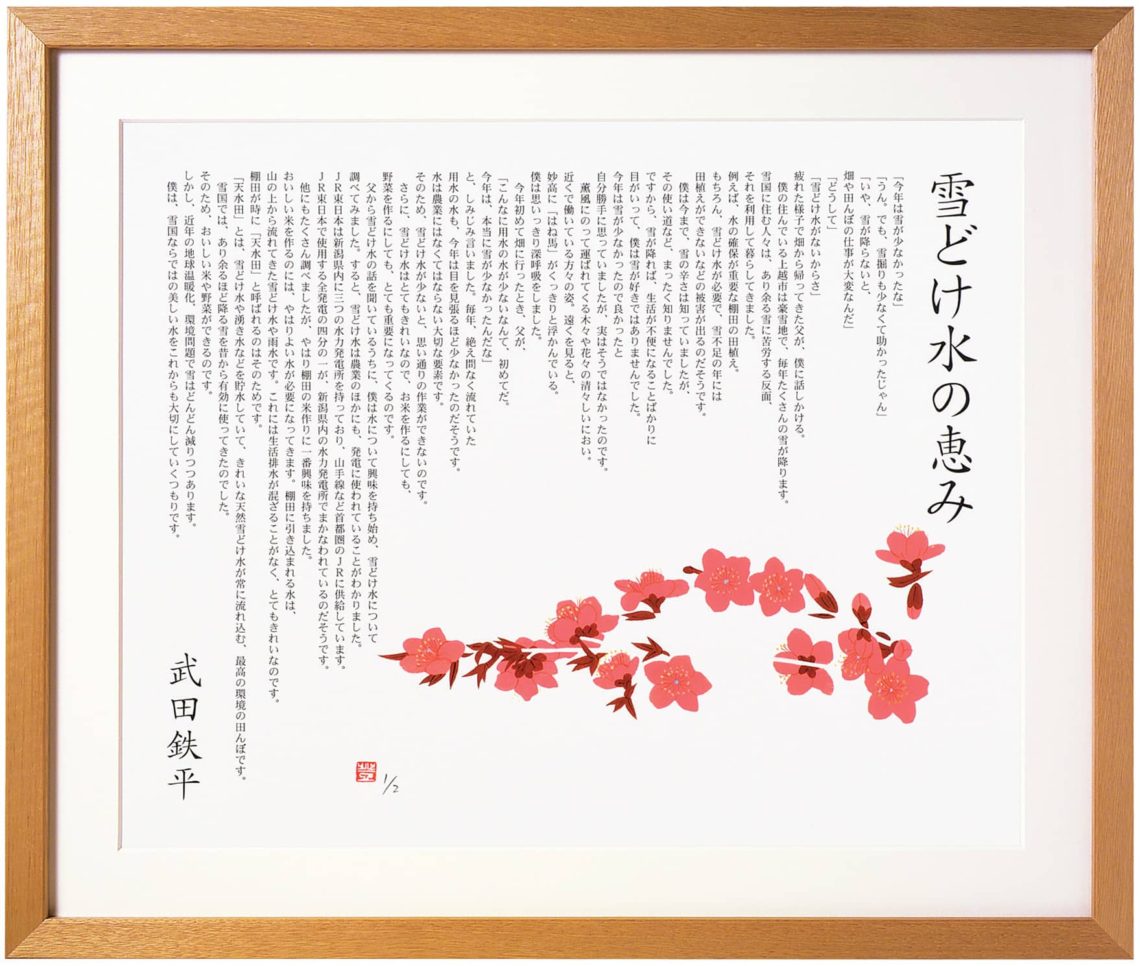 雪どけ水の恵み
「今年は雪が少なかったな」
「うん。でも、雪掘りも少なくて助かったじゃん」
「いや、雪が降らないと、
畑や田んぼの仕事が大変なんだ」
「どうして」
「雪どけ水がないからさ」
疲れた様子で畑から帰ってきた父が、僕に話しかける。
僕の住んでいる上越市は豪雪地で、毎年たくさんの雪が降ります。
雪国に住む人々は、あり余る雪に苦労する反面、
それを利用して暮らしてきました。
例えば、水の確保が重要な棚田の田植え。
もちろん、雪どけ水が必要で、雪不足の年には
田植えができないなどの被害が出るのだそうです。
僕は今まで、雪の辛さは知っていましたが、
その使い道など、まったく知りませんでした。
ですから、雪が降れば、生活が不便になることばかりに
目がいって、僕は雪が好きではありませんでした。
今年は雪が少なかったので良かったと
自分勝手に思っていましたが、実はそうではなかったのです。
薫風にのって運ばれてくる木々や花々の清々しいにおい。
近くで働いている方々の姿。遠くを見ると、
妙高に「はね馬」がくっきりと浮かんでいる。
僕は思いっきり深呼吸をしました。
今年初めて畑に行ったとき、父が、
「こんなに用水の水が少ないなんて、初めてだ。
今年は、本当に雪が少なかったんだな」
と、しみじみ言いました。毎年、絶え間なく流れていた
用水の水も、今年は目を見張るほど少なかったのだそうです。
水は農業にはなくてはならない大切な要素です。
そのため、雪どけ水が少ないと、思い通りの作業ができないのです。
さらに、雪どけ水はとてもきれいなので、お米を作るにしても、
野菜を作るにしても、とても重要になってくるのです。
父から雪どけ水の話を聞いているうちに、僕は水について興味を持ち始め、雪どけ水について
調べてみました。すると、雪どけ水は農業のほかにも、発電に使われていることがわかりました。
JR東日本は新潟県内に三つの水力発電所を持っており、山手線など首都圏のJRに供給しています。
JR東日本で使用する全発電の四分の一が、新潟県内の水力発電所でまかなわれているのだそうです。
他にもたくさん調べましたが、やはり棚田の米作りに一番興味を持ちました。
おいしい米を作るのには、やはりよい水が必要になってきます。棚田に引き込まれる水は、
山の上から流れてきた雪どけ水や雨水です。これには生活排水が混ざることがなく、とてもきれいなのです。
棚田が時に、「天水田」と呼ばれるのはそのためです。
「天水田」とは、雪どけ水や湧き水などを貯水していて、きれいな天然雪どけ水が常に流れ込む、最高の環境の田んぼです。
雪国では、あり余るほど降る雪を昔から有効に使ってきたのでした。
そのため、おいしい米や野菜ができるのです。
しかし、近年の地球温暖化、環境問題で雪はどんどん減りつつあります。
僕は、雪国ならではの美しい水をこれからも大切にしていくつもりです。
武田鉄平
1/2